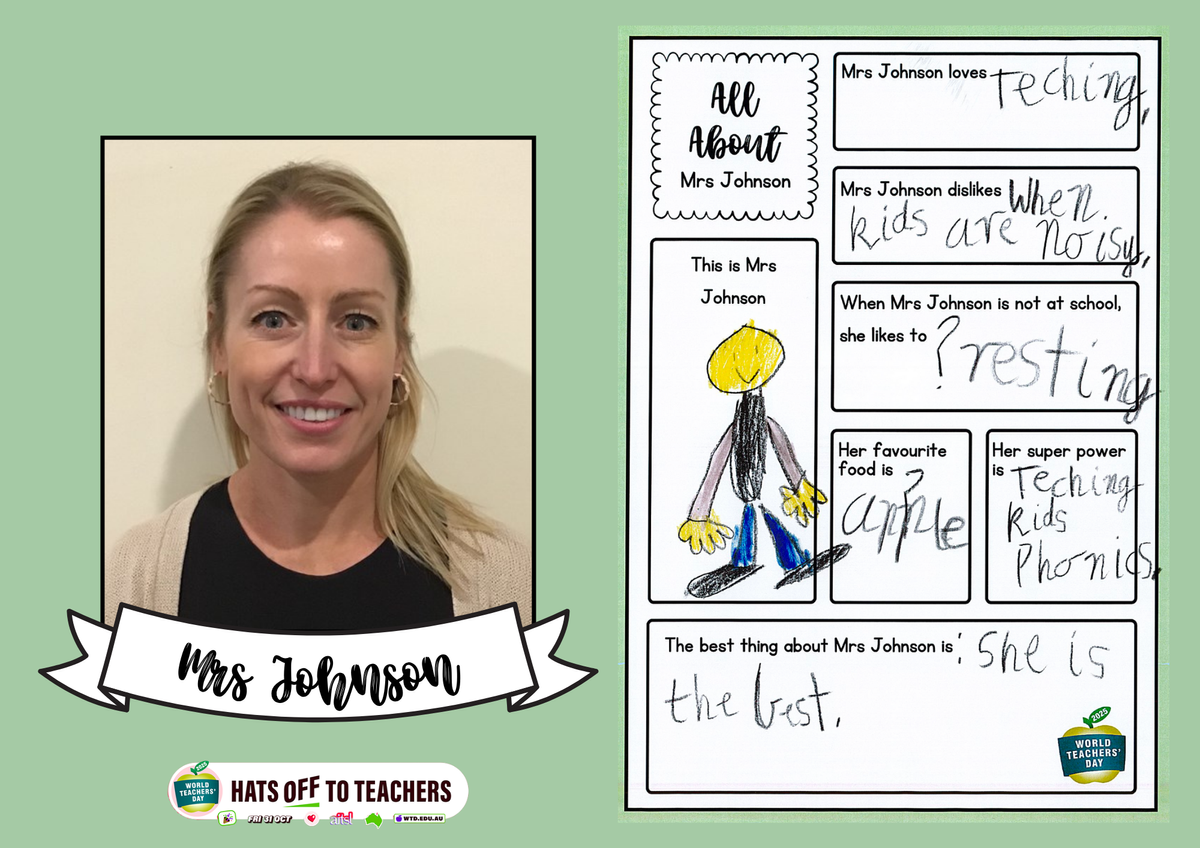 Mrs Johnson
2025
WORLD
TEACHERS'
DAY
HATS OFF TO TEACHERS
FRI 31 OCT
aitsl
WTD.EDU.AU
All
About
Mrs Johnson
This is Mrs
Johnson
Mrs Johnson loves Teching,
Mrs Johnson dislikes When.
kids are noisy,
When Mrs Johnson is not at school,
she likes to ? resting
Her favourite
food is ?
apple
Her super power
is Teching
kids
Phonics.
The best thing about Mrs Johnson is: She is
the best.
2025
WORLD
TEACHERS'
DAY